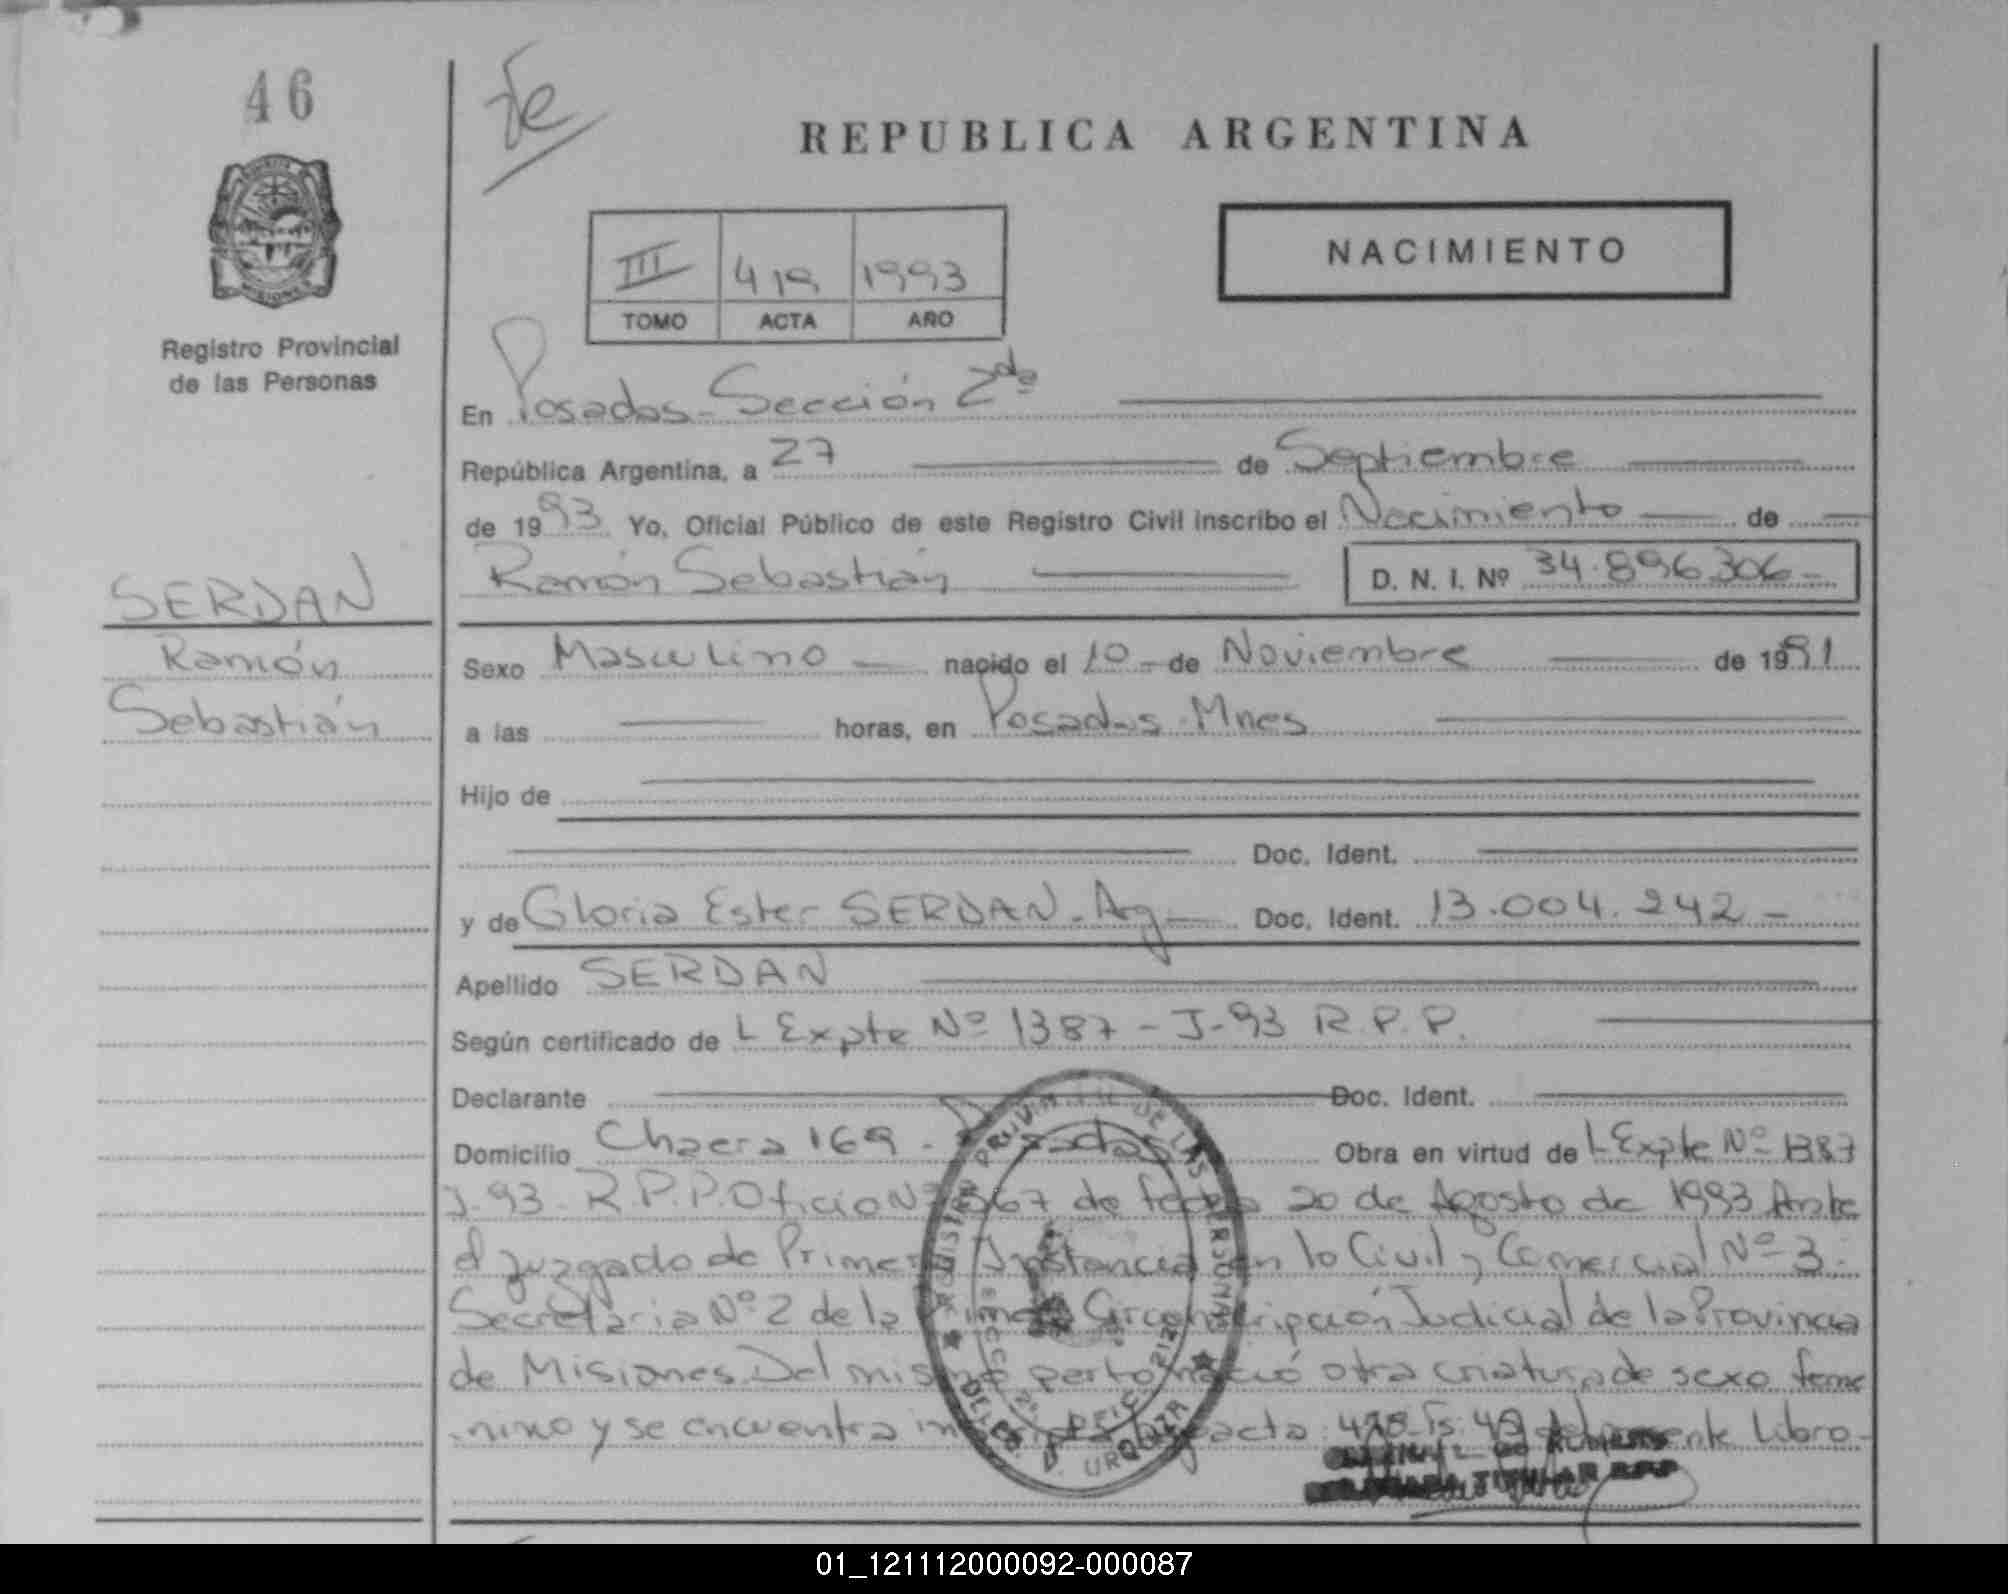 46
MISIONES
Registro Provincial
de las Personas
SERDAN
Ramón
Sebastián
REPUBLICA ARGENTINA
III 419 1993
TOMO ACTA AÑO
NACIMIENTO
En Posadas - Sección 2da
República Argentina, a 27 de Septiembre
de 1993 Yo, Oficial Público de este Registro Civil inscribo el Nacimiento de
Ramón Sebastián D. N. I. Nº 34.896.306
Sexo Masculino nacido el 10 de Noviembre de 1991
a las horas, en Posadas Mnes
Hijo de
Doc. Ident.
y de Gloria Ester SERDAN - Arg Doc. Ident. 13.004.242
Apellido SERDAN
Según certificado de L Expte Nº 1387 - J-93 R.P.P.
Declarante Doc. Ident.
Domicilio Chacra 169 - Posadas Obra en virtud de L Expte Nº 1387
J-93 - R.P.P. Oficio Nº 567 de fecha 20 de Agosto de 1993 Ante
el Juzgado de Primera Instancia en lo Civil y Comercial Nº 3
Secretaria Nº 2 de la Primera Circunscripción Judicial de la Provincia
de Misiones. Del mismo parto nació otra criatura de sexo feme
nino y se encuentra inscripta acta Libro
01_121112000092-000087